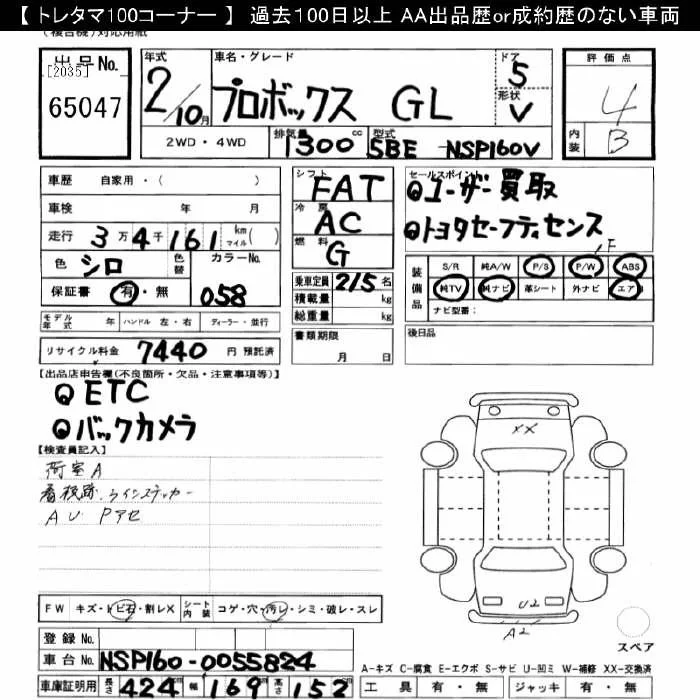 【 トレタマ100コーナー 】 過去100日以上 AA出品歴or成約歴のない車両
(複合機)対応用紙
出品No.
[2035]
65047
年式
2/10月
車名・グレード
プロボックス GL
ドア
5
形状
V
評価点
4
内装
B
2WD・4WD
排気量
1300cc
型式
5BE - NSP160V
車歴 自家用・( )
車検 年 月
走行 3万4千161 km マイル( )
色 シロ 色替 カラーNo.
保証書 有・無 058
モデル年式 年 ハンドル 左・右 ディーラー・並行
リサイクル料金 7440 円 預託済
シフト FAT
冷房 AC
燃料 G
乗車定員 2/5名
積載量 kg
総重量 kg
書類期限
月 日
セールスポイント
ユーザー買取
トヨタセーフティセンス
F
装備品
S/R 純A/W P/S P/W ABS
純TV 純ナビ 革シート 外ナビ エアB
ナビ型番:
後日品
【出品店申告欄(不良箇所・欠品・注意事項等)】
ETC
バックカメラ
【検査員記入】
荷室A
看板跡、ラインステッカー
AU Pアセ
XX
U2
A2
スペア
FW キズ・トビ石・割レX シート内装 コゲ・穴・汚レ・シミ・破レ・スレ
登録No.
車台No. NSP160-0055824
車庫証明用 長さ 424 幅 169 高さ 152
A-キズ C-腐食 E-エクボ S-サビ U-凹ミ W-補修 XX-交換済
工具 有・無 ジャッキ 有・無